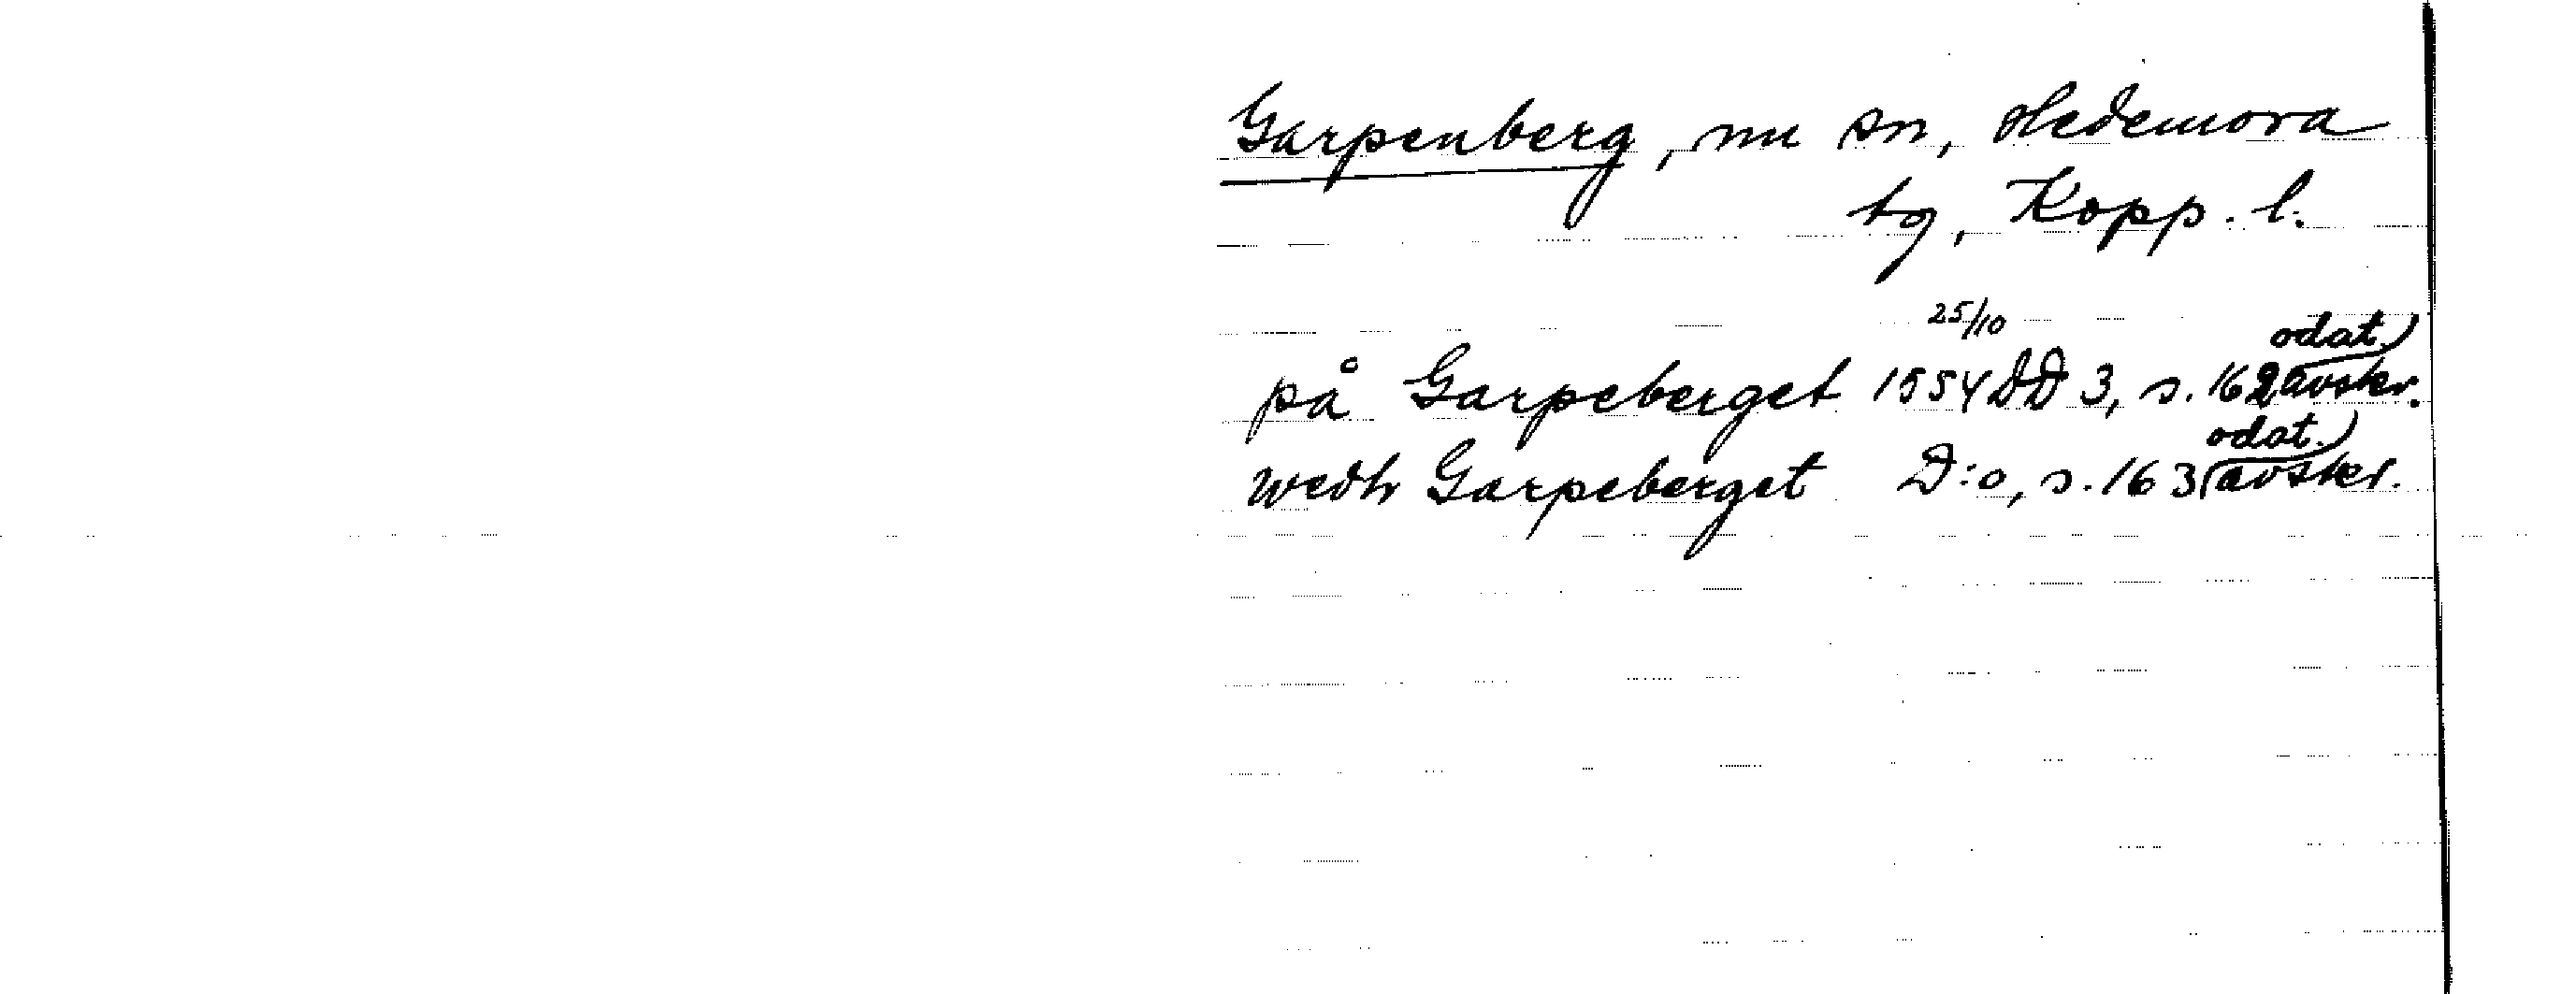 Garpenberg, nu sn, Hedemora
tg, Kopp. l.
25/10 odat.)
på Garpeberget 1554 DD 3, s. 162 avskr.
odat.)
wedh Garpeberget D:o, s. 163 (avskr.